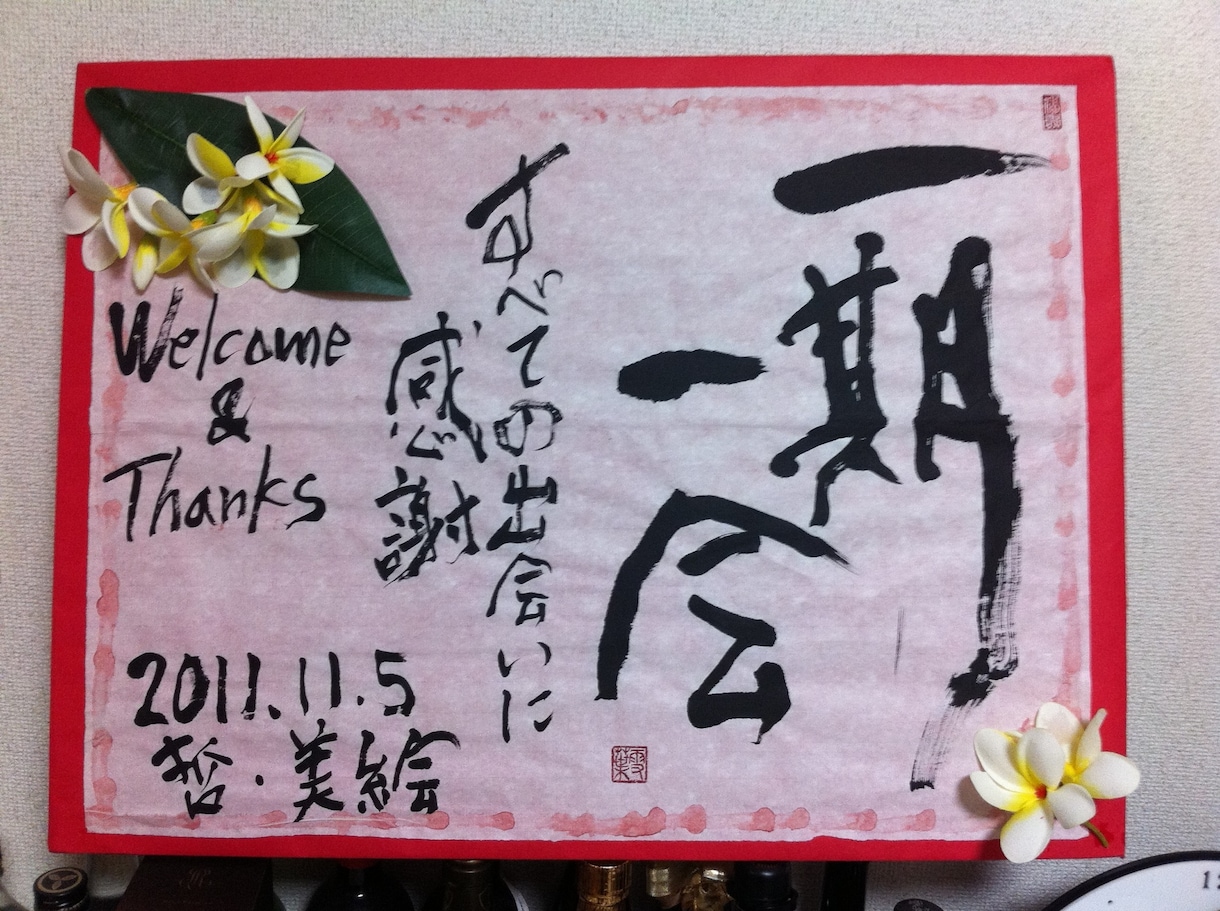 一期
一会
すべての出会いに
感謝
Welcome
&
Thanks
2011.11.5
哲・美絵